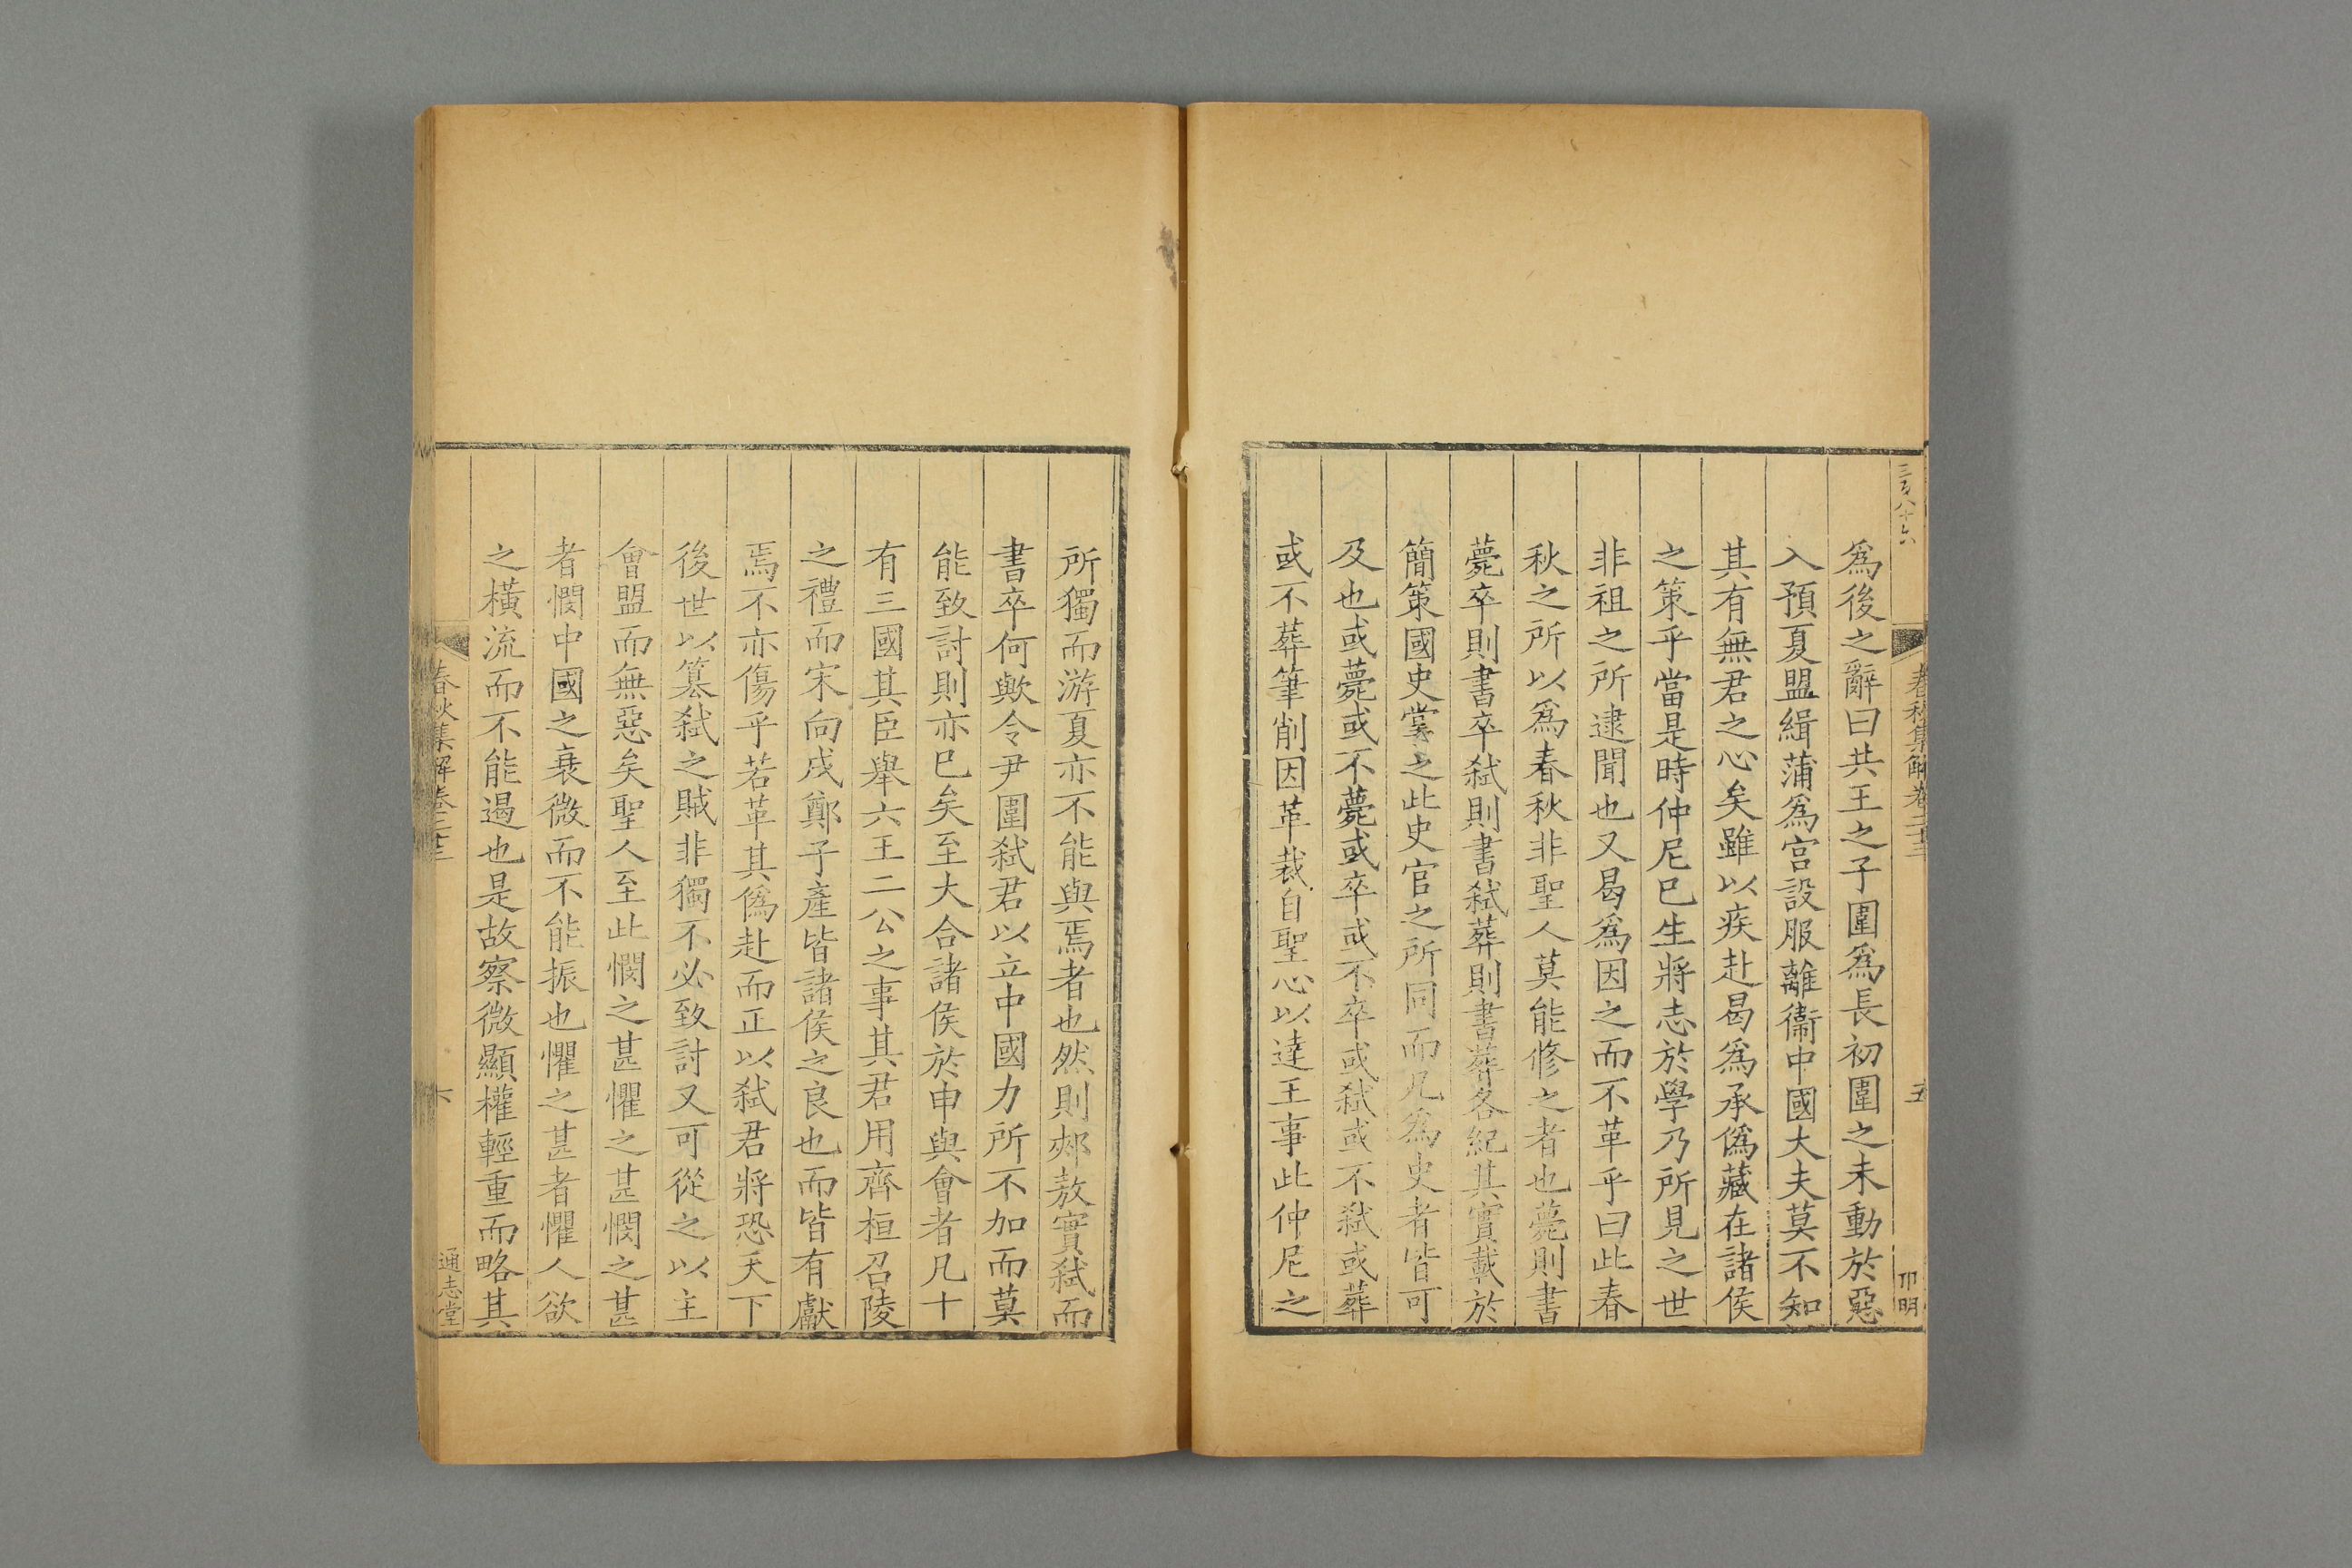 三百八十六
春秋集解卷二十三
五
卬明
爲後之辭曰共王之子圍爲長初圍之未動於惡
入預夏盟緝蒲爲宫設服離衞中國大夫莫不知
其有無君之心矣雖以疾赴曷爲承僞藏在諸侯
之策乎當是時仲尼巳生將志於學乃所見之世
非祖之所逮聞也又曷爲因之而不革乎曰此春
秋之所以爲春秋非聖人莫能修之者也薨則書
薨卒則書卒弑則書弑葬則書葬各紀其實載於
簡策國史掌之此史官之所同而凡爲史者皆可
及也或薨或不薨或卒或不卒或弑或不弑或葬
或不葬筆削因革裁自聖心以達王事此仲尼之
所獨而游夏亦不能與焉者也然則郟敖實弑而
書卒何歟令尹圍弑君以立中國力所不加而莫
能致討則亦巳矣至大合諸侯於申與會者凡十
有三國其臣舉六王二公之事其君用齊桓召陵
之禮而宋向戌鄭子產皆諸侯之良也而皆有獻
焉不亦傷乎若革其僞赴而正以弑君將恐天下
後世以篡弑之賊非獨不必致討又可從之以主
會盟而無惡矣聖人至此憫之甚懼之甚憫之甚
者憫中國之衰微而不能振也懼之甚者懼人欲
之橫流而不能遏也是故察微顯權輕重而略其
春秋集解卷二十三
六
通志堂